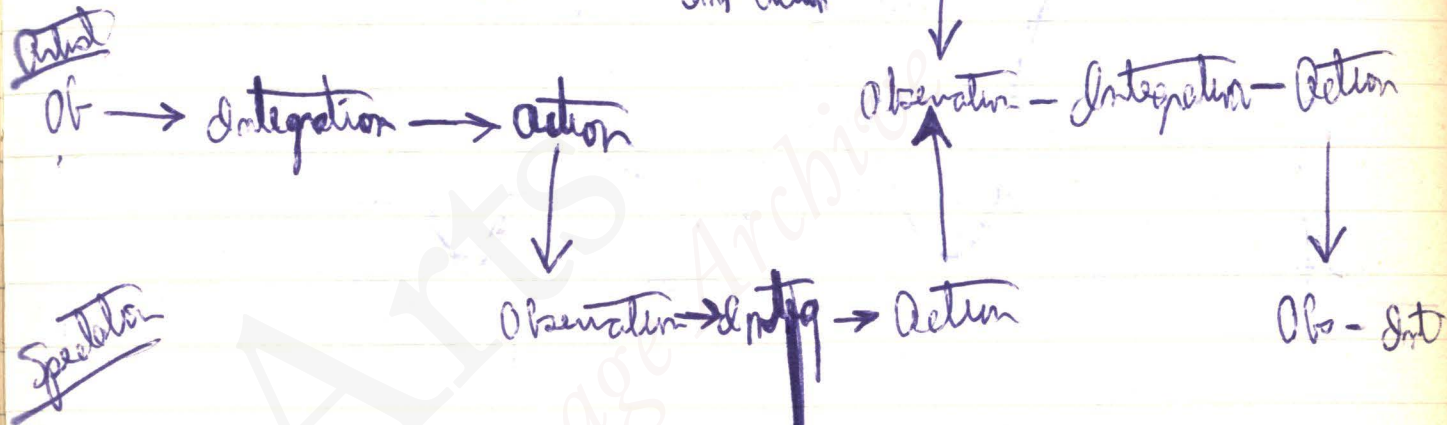 Artist
Ob → Integration → action
Observation - Integration - Action
Spectator
Observation → Integ → Action
Obs - Int
Arts
age Archive